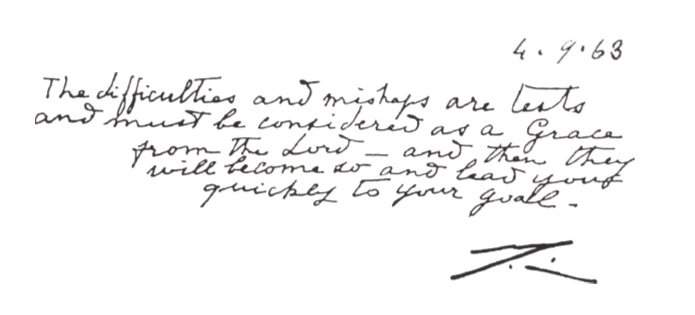 4.9.63
The difficulties and mishaps are tests
and must be considered as a Grace
from the Lord — and then they
will become so and lead you
quickly to your goal.